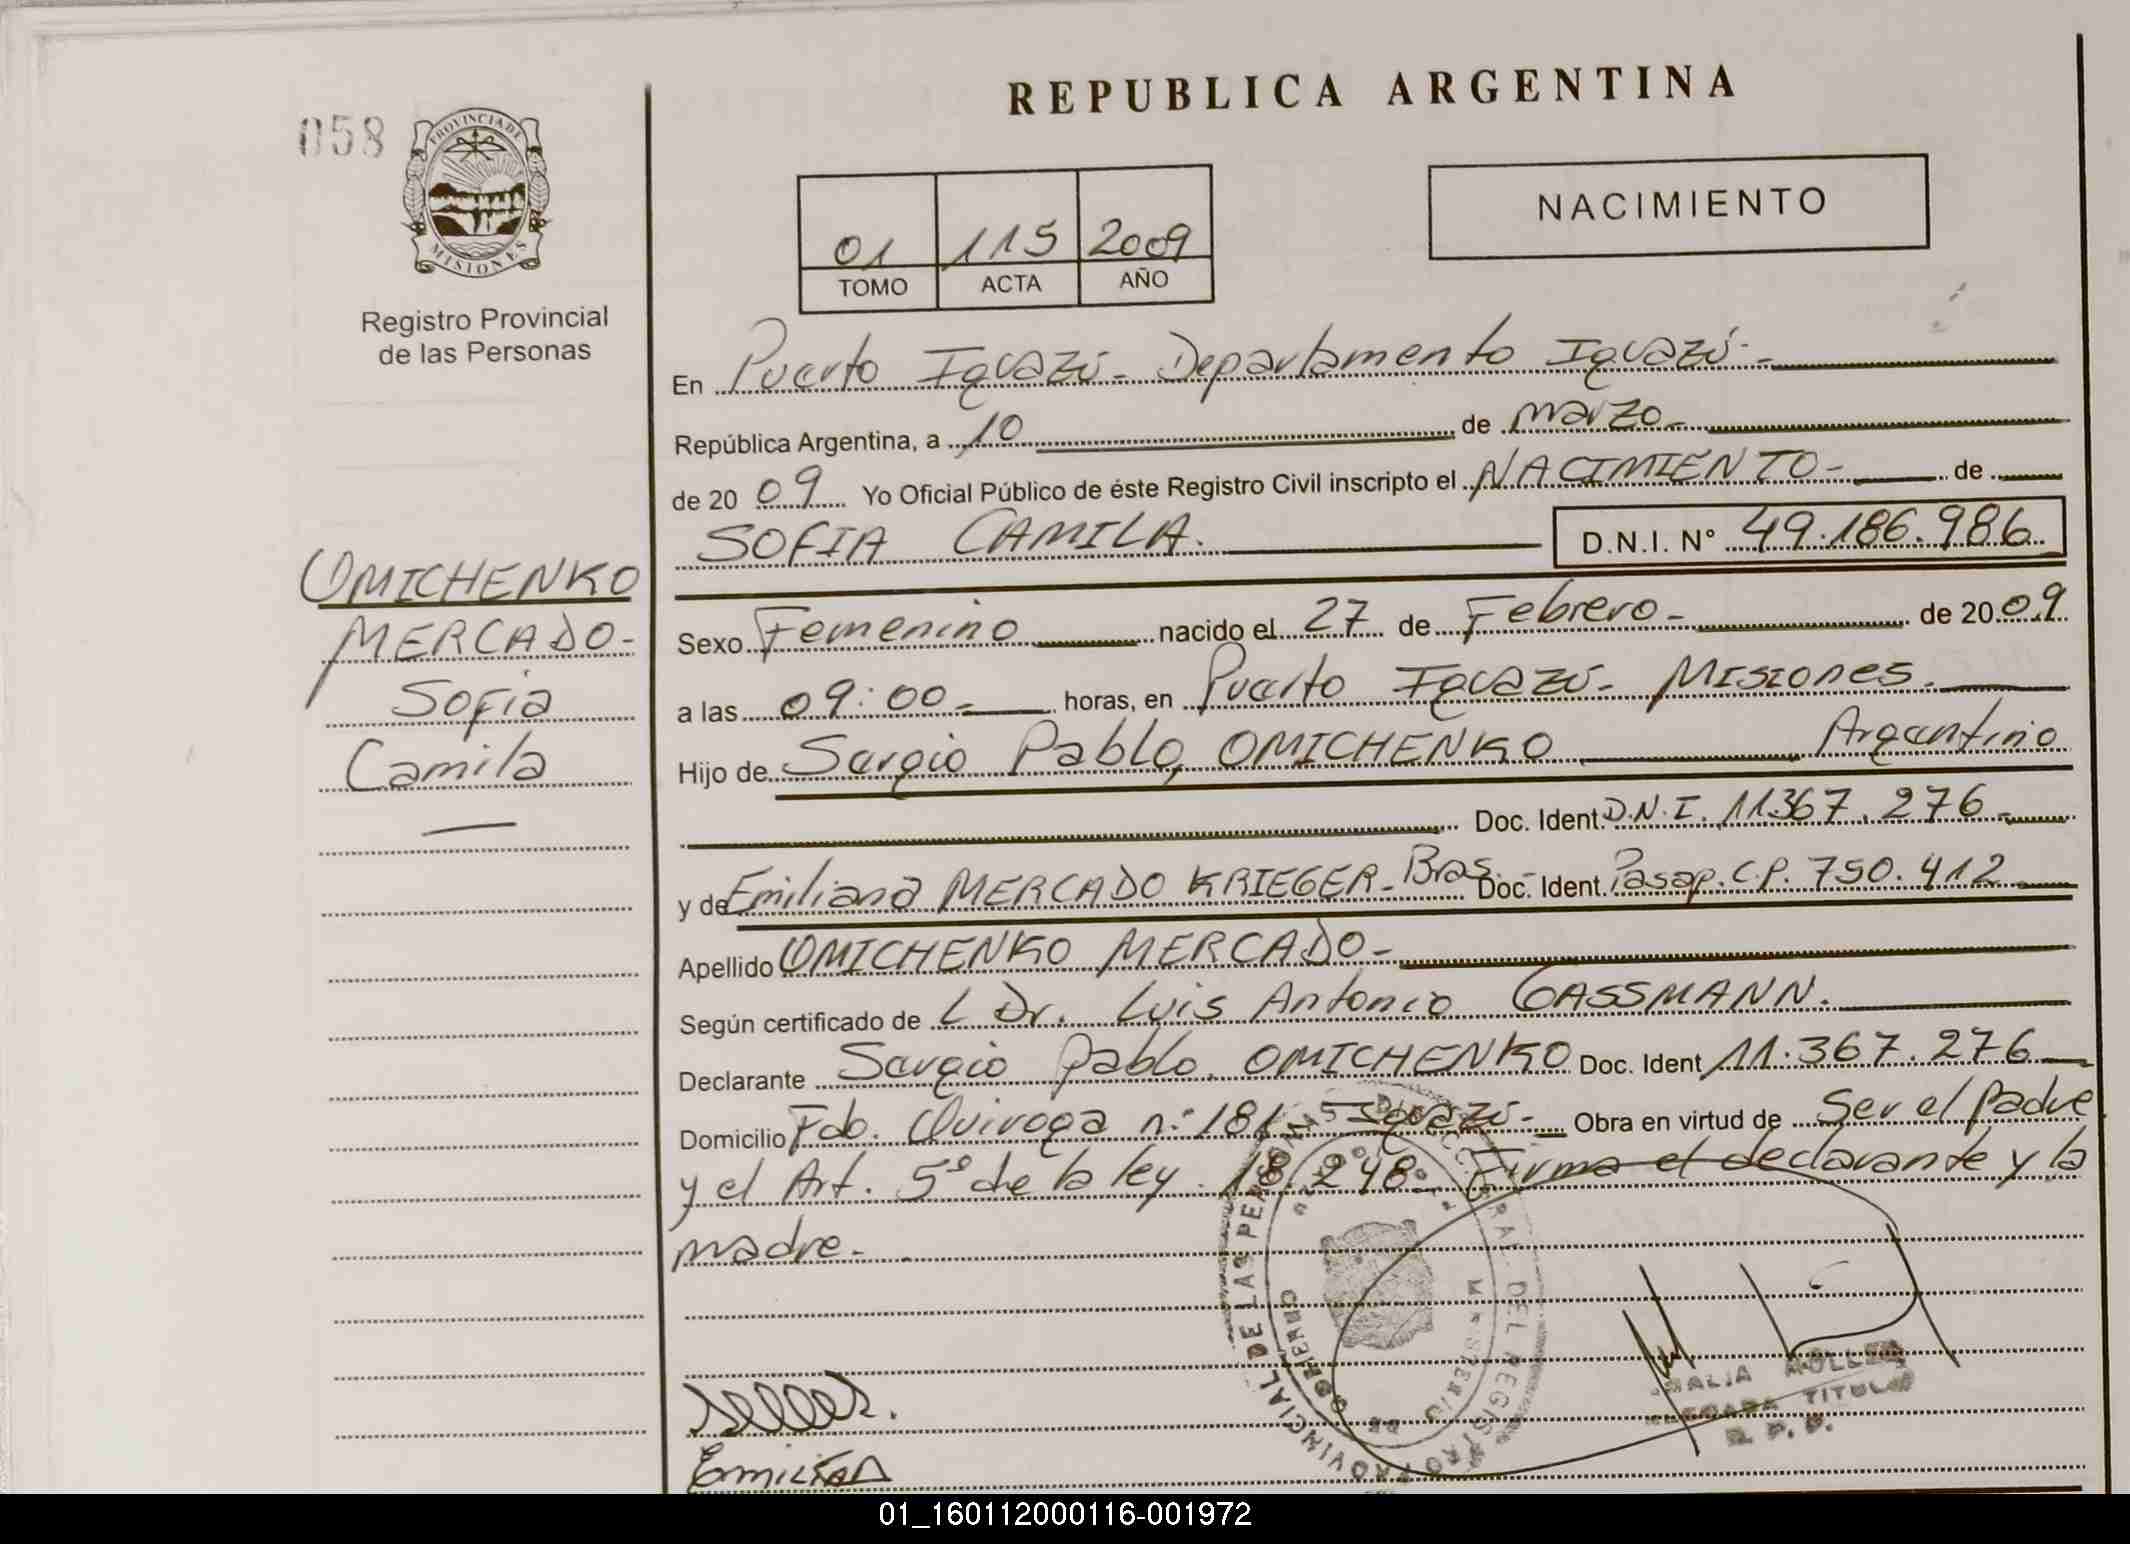 REPUBLICA ARGENTINA
058
PROVINCIA DE
MISIONES
Registro Provincial
de las Personas
NACIMIENTO
01 115 2009
TOMO ACTA AÑO
En Puerto Iguazú - Departamento Iguazú -
República Argentina, a 10 de marzo -
de 20 09 Yo Oficial Público de éste Registro Civil inscripto el NACIMIENTO - de
SOFIA CAMILA. D.N.I. N° 49.186.986
OMICHENKO
MERCADO -
Sofia
Camila
Sexo Femenino nacido el 27 de Febrero - de 20 09
a las 09:00 - horas, en Puerto Iguazú - Misiones.
Hijo de Sergio Pablo, OMICHENKO Argentino
Doc. Ident. D.N.I. 11.367.276 -
y de Emiliana MERCADO KRIEGER - Bras. - Doc. Ident. Pasap. C.P. 750.412
Apellido OMICHENKO MERCADO -
Según certificado de L Dr. Luis Antonio GASSMANN.
Declarante Sergio Pablo, OMICHENKO Doc. Ident 11.367.276
Domicilio Fdo. Quiroga n° 181 - Iguazú - Obra en virtud de Ser el Padre
y el Art. 5° de la ley 18.248 - Firma el declarante y la
madre -
REGISTRO PROVINCIAL DE LAS PERSONAS
MINISTERIO DE GOBIERNO
TITULAR
R. P. P.
01_160112000116-001972